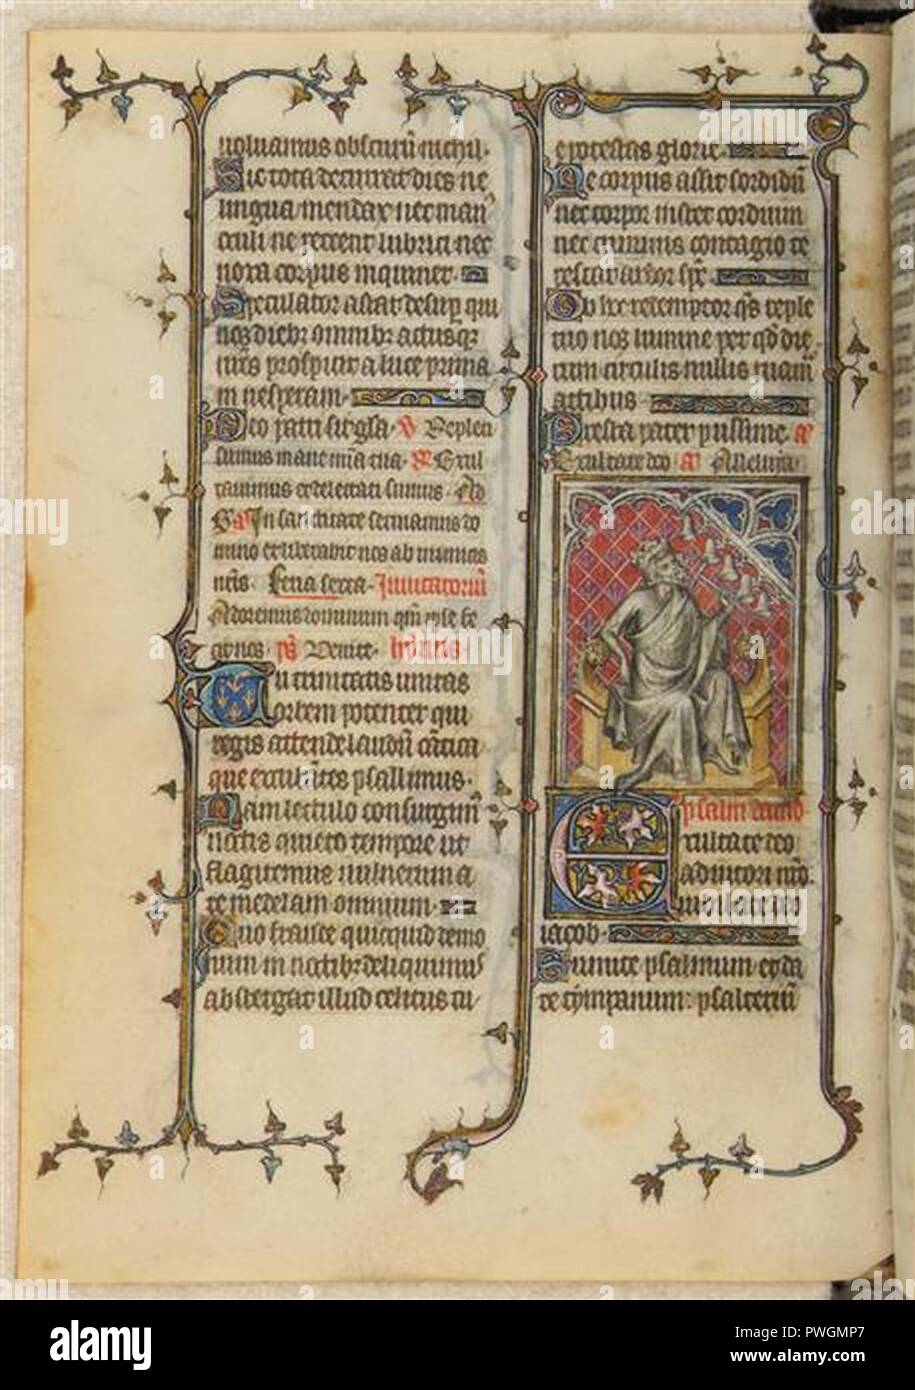 uoluamus obscurū nichil.
Sic tota decurrat dies ne
lingua mendax nec man'
oculi ne peccent lubrici nec
noxa corpus inquinet.
Speculator astat desup qui
nos dieb; omnib; actusq;
nr̄os prospicit a luce prima
in uesperam.
Deo patri sit gl̄a. Repleti
sumus mane mīa tua. Exul
tauimus et delectati sumus. Ad
In sanctitate seruiamus do
mino et liberabit nos ab inimicis
nr̄is. Feria sexta. Inuitatoriū
Adoremus dominum qm̄ ipse fe
cit nos. ps̄ Venite. hymnus.
Tu trinitatis unitas
orbem potenter qui
regis attende laudū cātica
que excubātes psallimus.
Nam lectulo consurgim'
noctis quieto tempore ut
flagitemus uulnerum a
te medelam omnium.
Quo fraude quicquid demo
num in noctib; deliquimus
abstergat illud celitus tu
e potestas glorie.
Ne corpus assit sordidū
nec torpor instet cordium
nec criminis contagio te
pescat ardor sp̄c.
Ob hoc redemptor q̄s reple
tuo nos lumine per qd̄ die
rum circulis nullis ruam'
actibus.
Presta pater piissime. a
Exultate deo a Alleluja.
psalm dauid
Exultate deo
adiutori nr̄o.
iubilate deo
iacob.
Sumite psalmum et da
te tympanum: psalteriū
alamy
Image ID: PWGMP7
www.alamy.com